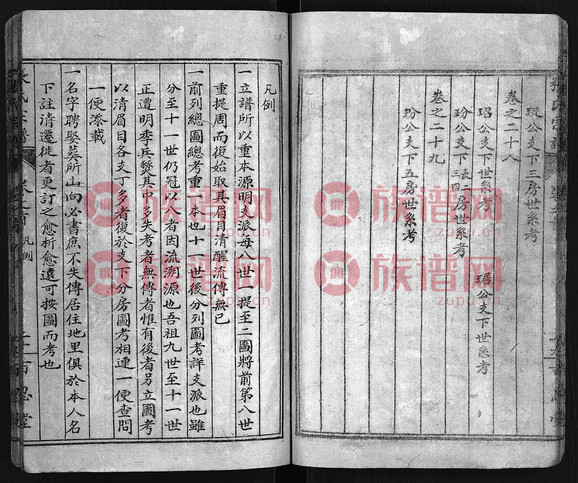 玜公支下三房世系考
卷之二十八
玿公支下世系考
玢公支下長二三四房世系考
琚公支下世系考
卷之二十九
玢公支下五房世系考
凡例
一立譜所以重本源明支派每八世一提至二圖將前第八世
重提周而復始取其眉目清醒流傳無已
一前列總圖總考重一本也十一世後分列圖考詳支派也雖
分至十一世仍冠以八者因流溯源也吾祖九世至十一世
正遭明季兵燹其中多失考者無傳者惟有後者另立圖考
以清眉目各支丁多者復於支下分房圖考相連一便查問
一便添載
一名字聘娶葬所山向必書庶不失傳居住地里俱於本人名
下註清遷徙者更訂之愈析愈遠可按圖而考也
氏宗譜
卷之首
凡例
二
百忍堂
族谱网
zupu.cn
族谱网
zupu.cn
族谱网
zupu.cn
族谱网
zupu.cn